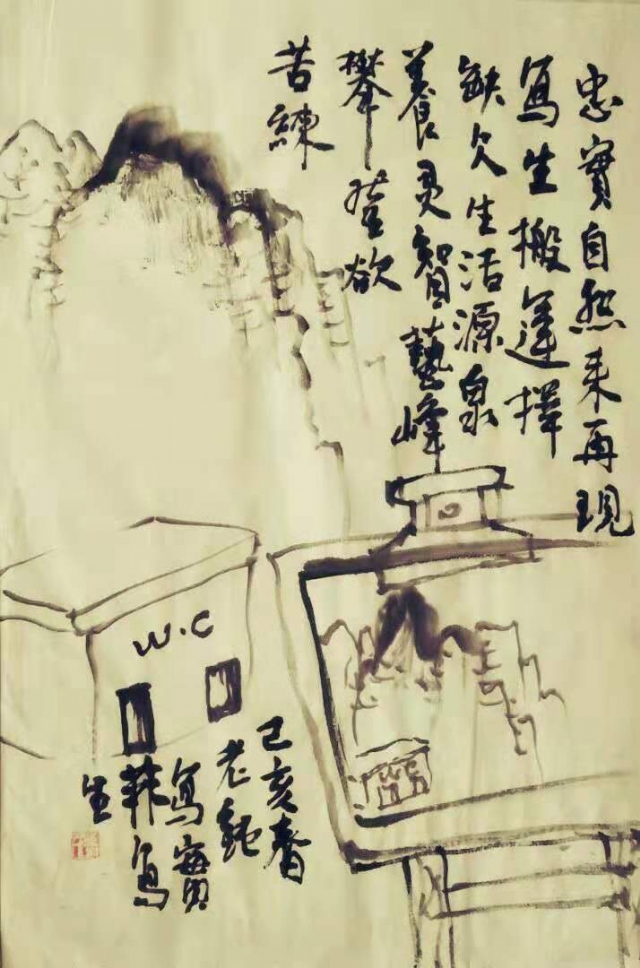 忠實自然来再現
寫生搬擇
缺欠生活源泉
養灵智藝峰
攀登欲
苦練
W.C
WC
己亥春
老
寫實
寫
生